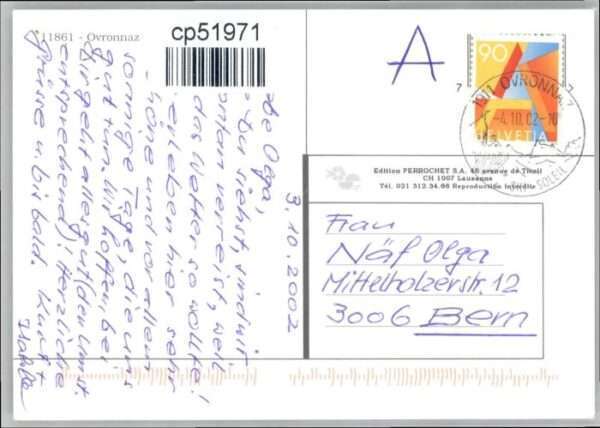 11861 - Ovronnaz
cp51971
A
90
HELVETIA
1911 OVRONNAZ
-4.10.02-10
SOLEIL
Edition PERROCHET S.A. 46 avenue de Tivoli
CH 1007 Lausanne
Tél. 021 312.34.66 Reproduction interdite
3.10.2002
Olga,
Du siehst, sind wir
verreist, weil
das Wetter so wollte!
erleben hier sehr
und vor allem
sonnige Tage, die uns
gut tun. Wir hoffen, bei
Dir geht alles gut (den Umst.
entsprechend). Herzliche
Grüsse u. bis bald. Kurt
Frau
Näf Olga
Mittelholzerstr. 12
3006 Bern